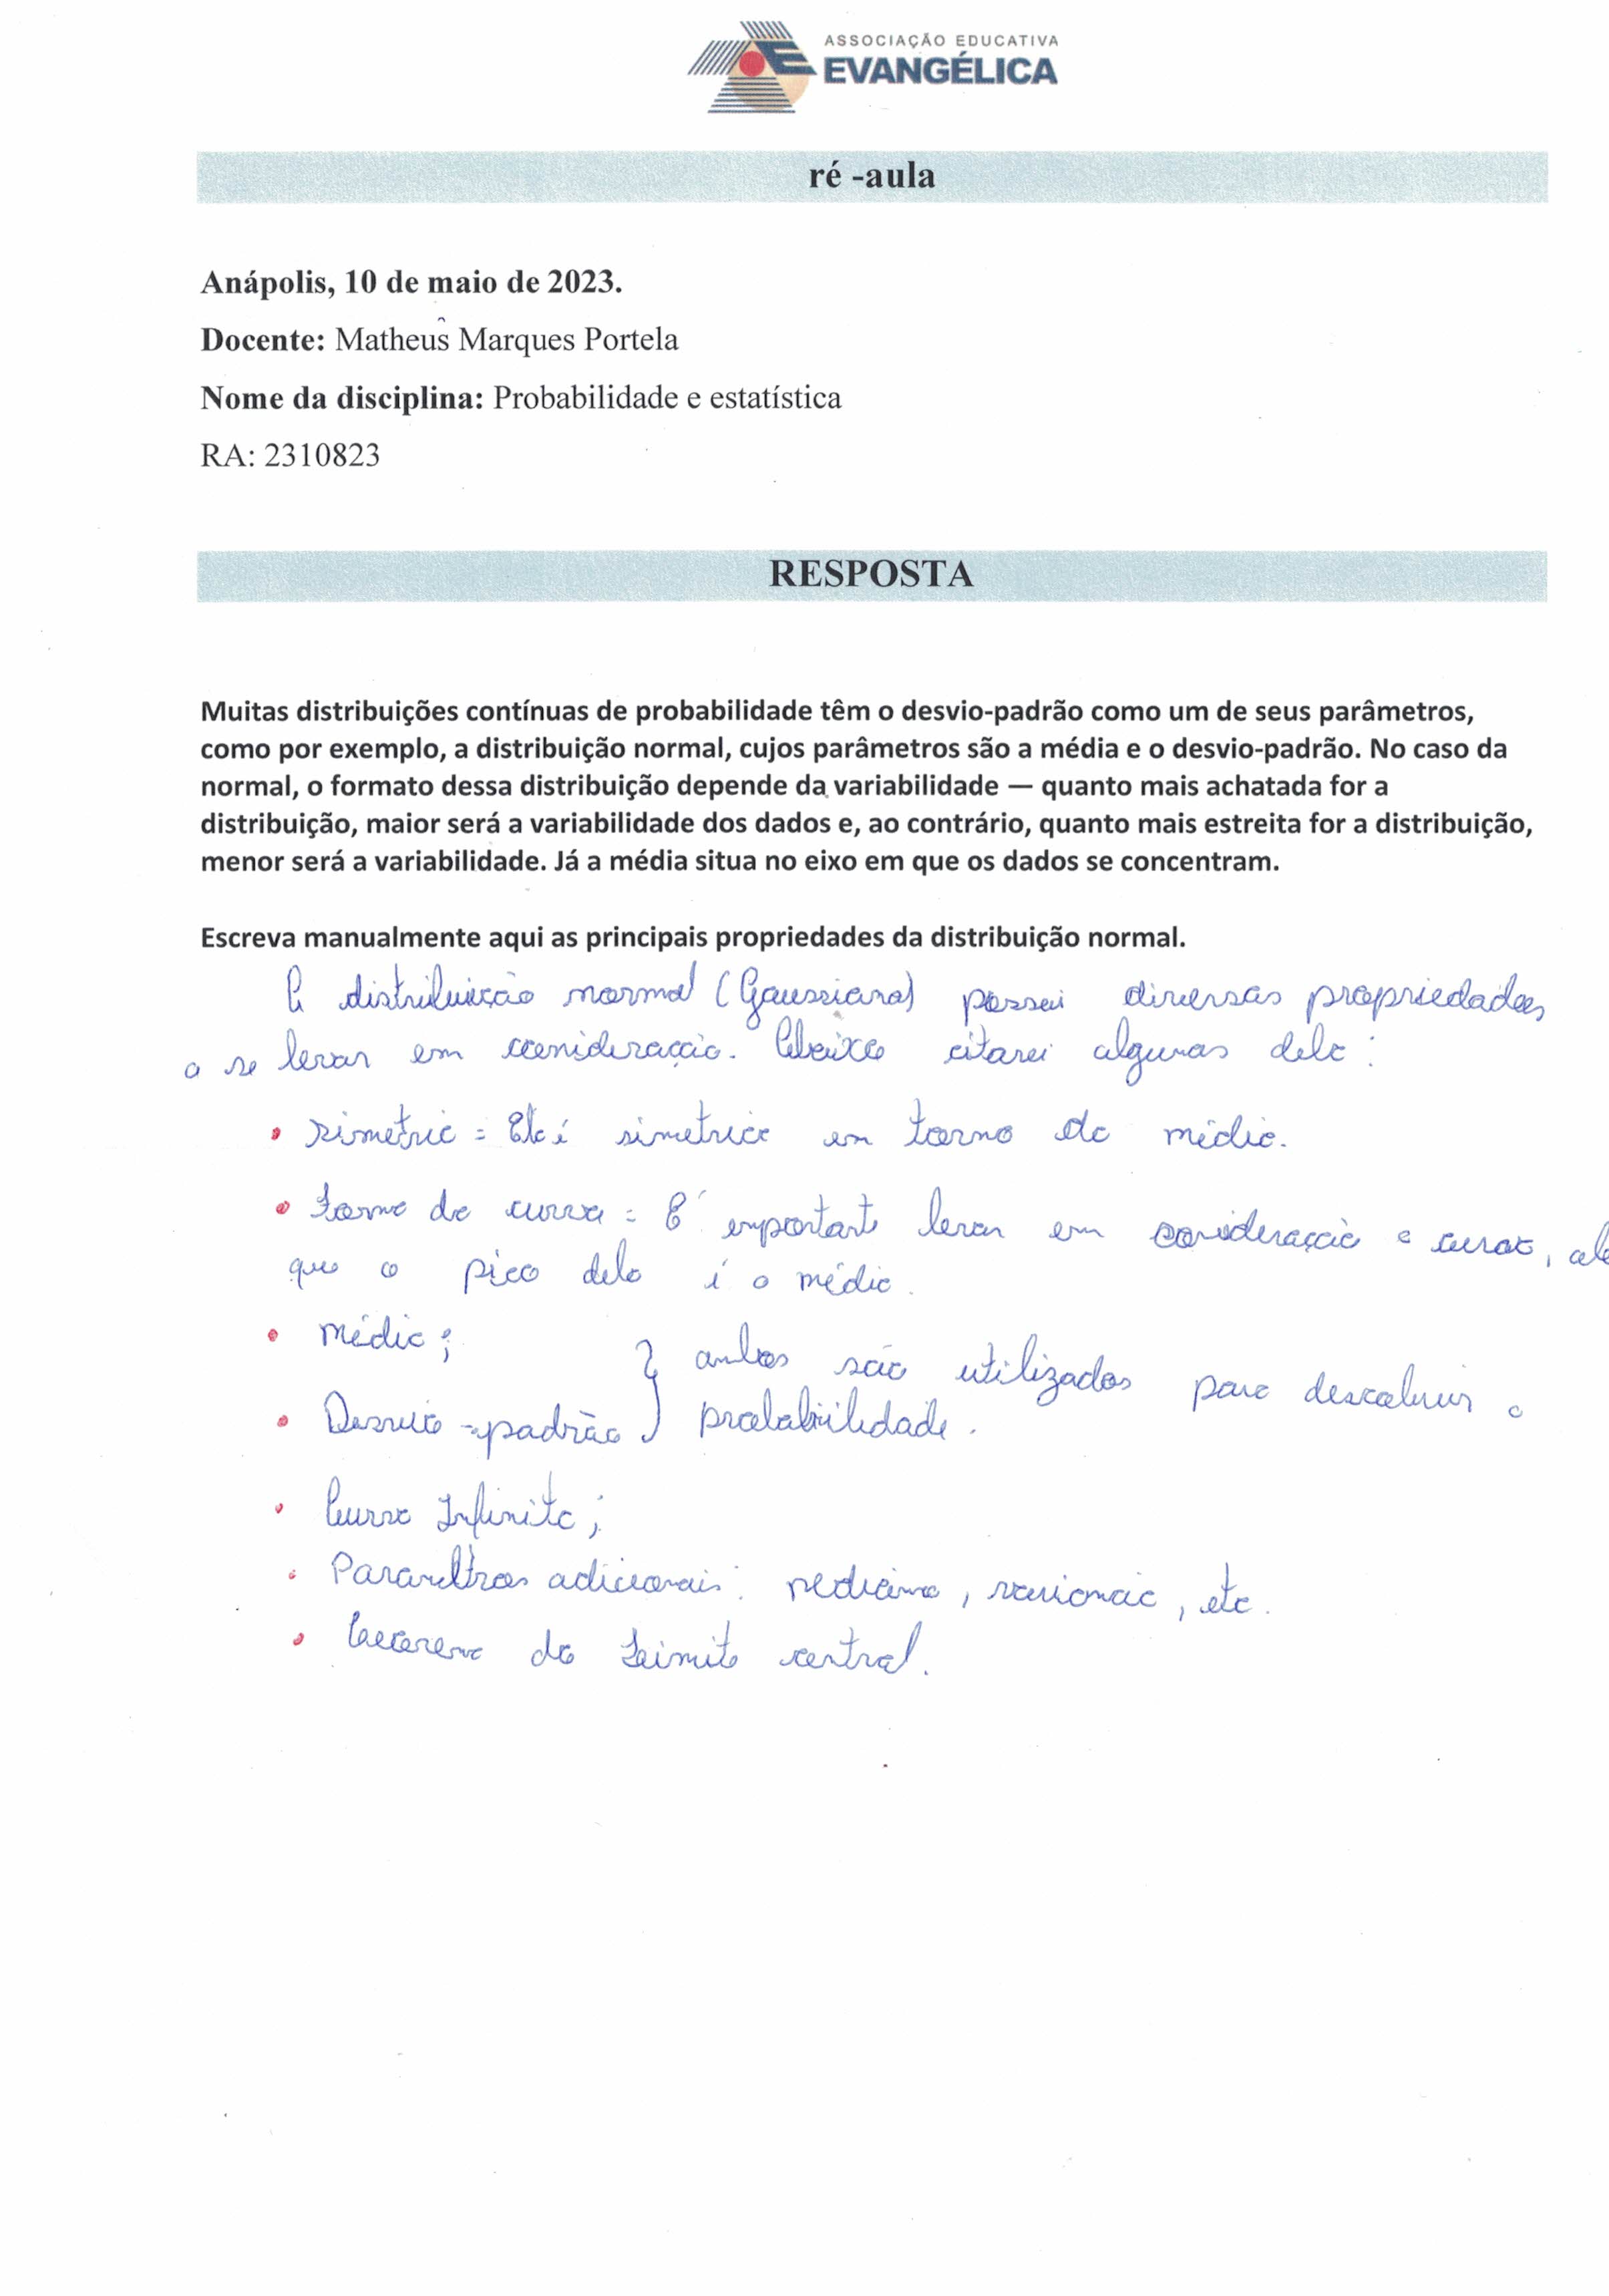 ASSOCIAÇÃO EDUCATIVA
EVANGÉLICA
ré -aula
Anápolis, 10 de maio de 2023.
Docente: Matheus Marques Portela
Nome da disciplina: Probabilidade e estatística
RA: 2310823
RESPOSTA
Muitas distribuições contínuas de probabilidade têm o desvio-padrão como um de seus parâmetros,
como por exemplo, a distribuição normal, cujos parâmetros são a média e o desvio-padrão. No caso da
normal, o formato dessa distribuição depende da variabilidade — quanto mais achatada for a
distribuição, maior será a variabilidade dos dados e, ao contrário, quanto mais estreita for a distribuição,
menor será a variabilidade. Já a média situa no eixo em que os dados se concentram.
Escreva manualmente aqui as principais propriedades da distribuição normal.
A distribuição normal (Gaussiana) possui diversas propriedades
a se levar em consideração. Abaixo citarei algumas dela:
• Simetria = Ela é simetrica em torno da média.
• Forma da curva = É importante levar em consideração a curva,
que o pico dela é a média.
• Média;
• Desvio-padrão } ambos são utilizados para descobrir a
probabilidade.
• Curva Infinita;
• Parametros adicionais: mediana, variancia, etc.
• Teorema do Limite central.